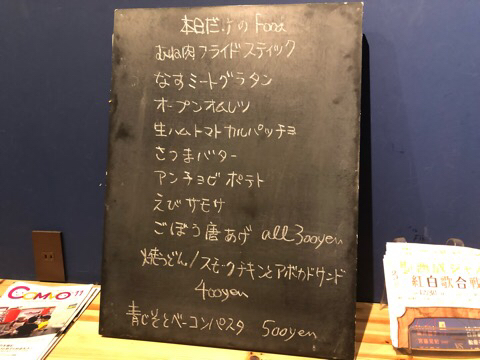 本日だけの Food
むね肉フライドスティック
なすミートグラタン
オープンオムレツ
生ハムトマトカルパッチョ
さつまバター
アンチョビポテト
えびサモサ
ごぼう唐あげ all 300yen
焼うどん/スモークチキンとアボカドサンド
400yen
青じそとベーコンパスタ 500yen
COMMO
11
紅白歌合戦